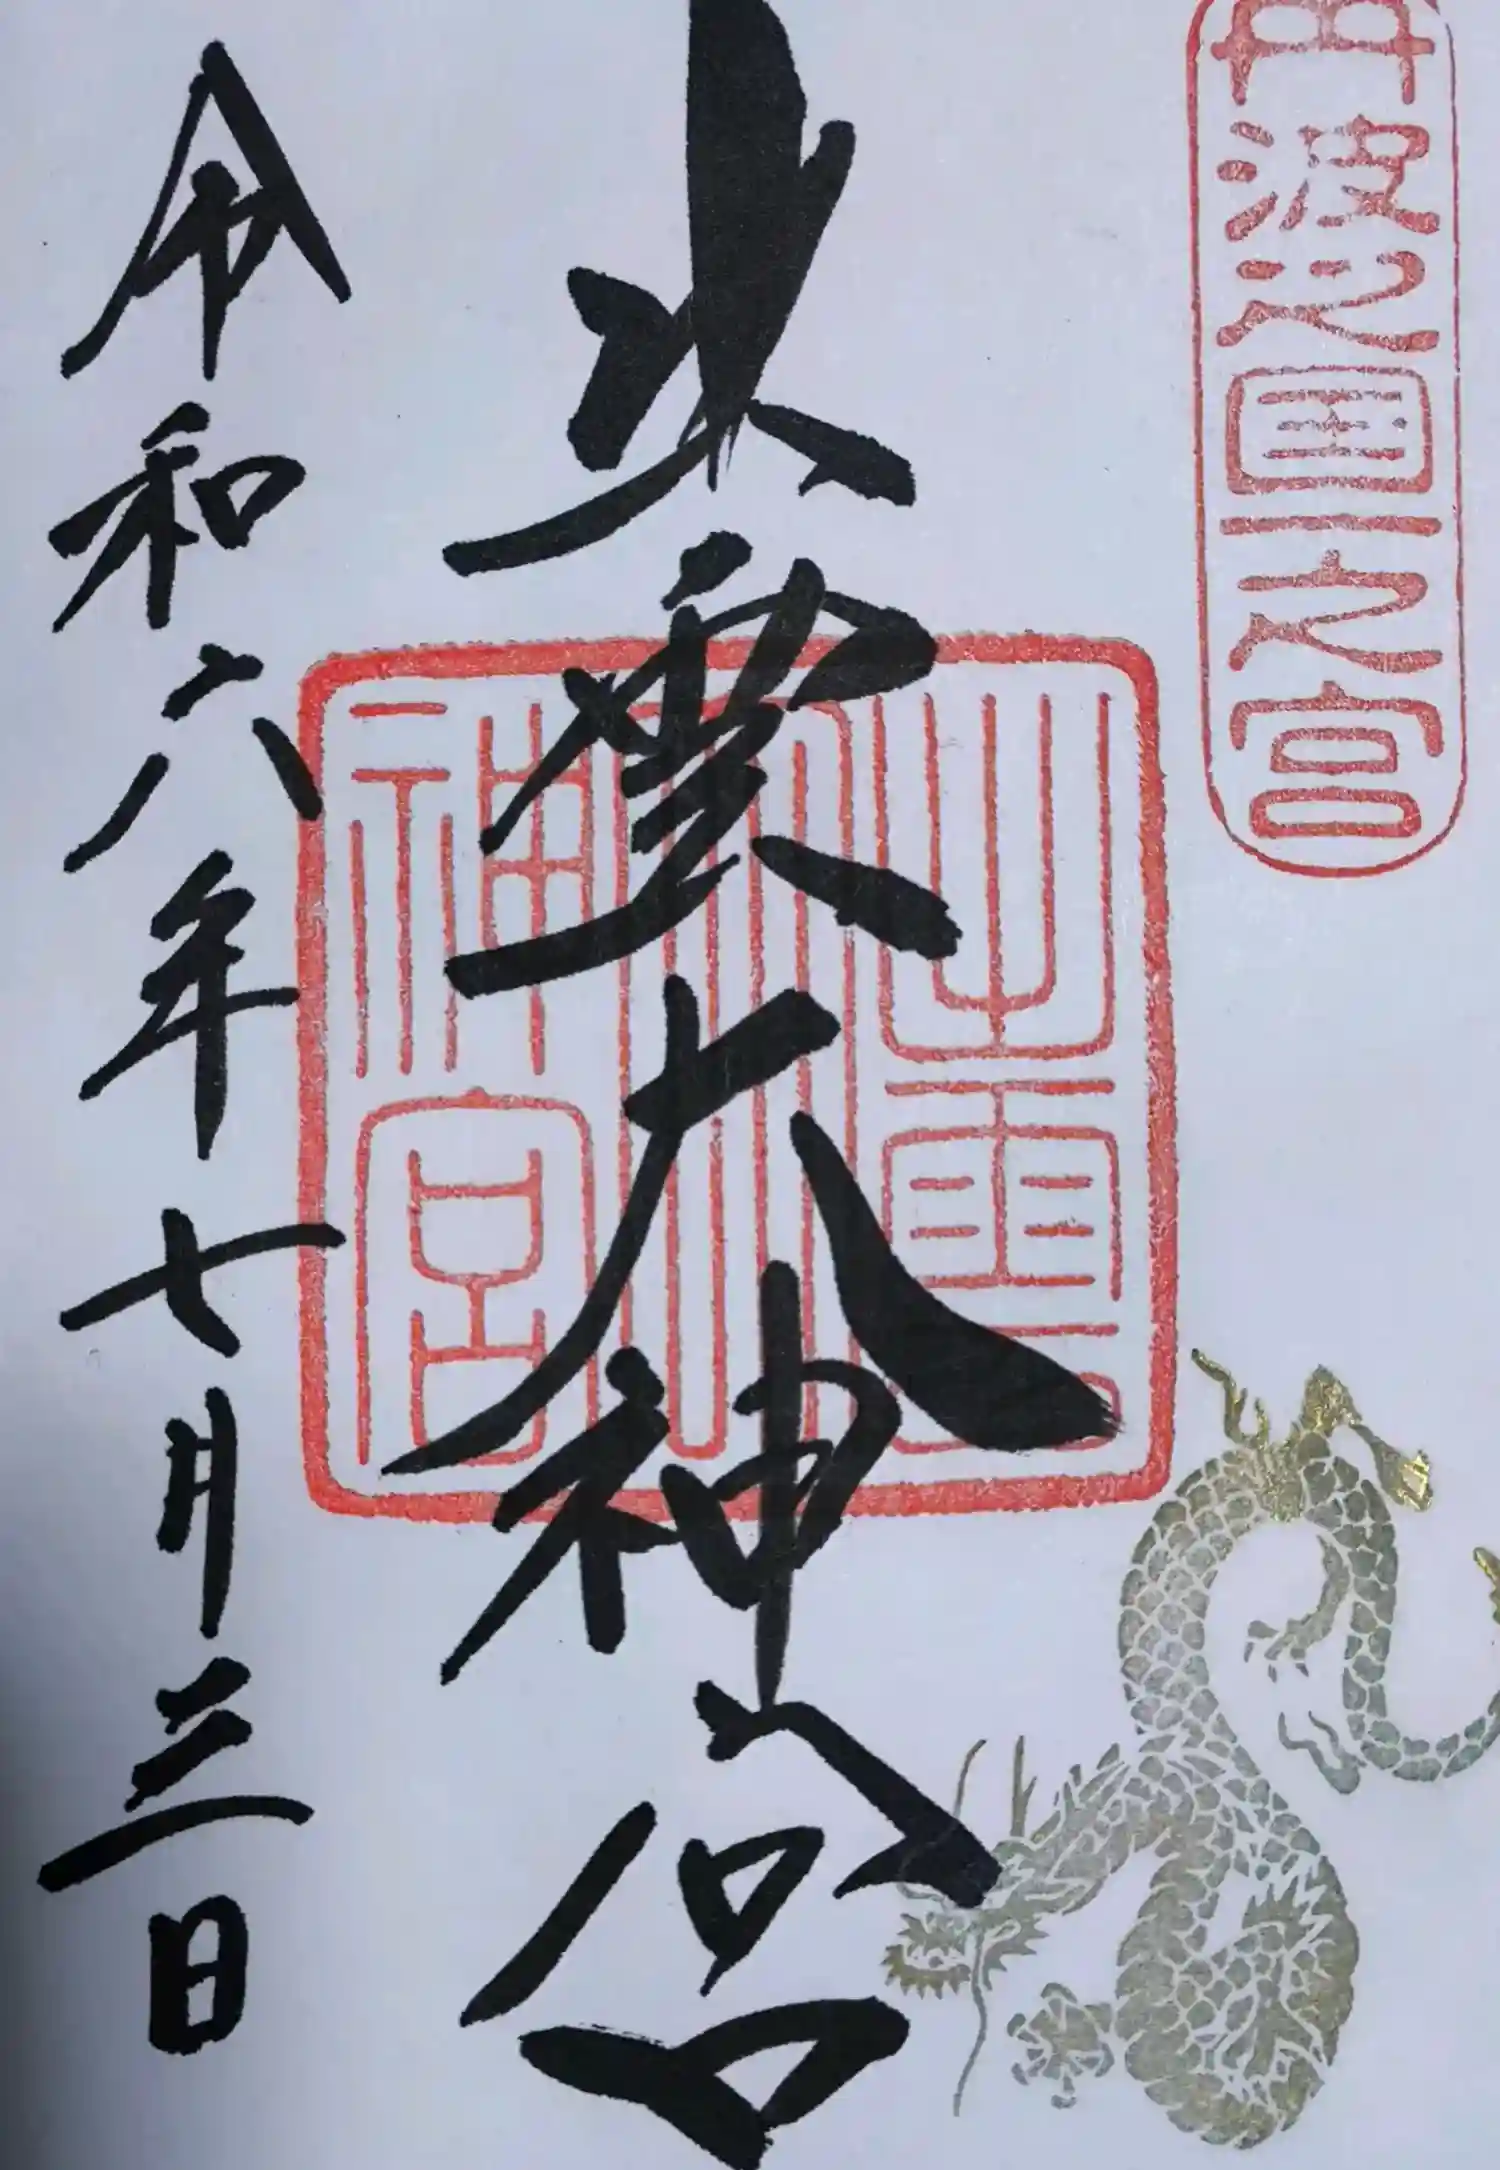 丹波之國一之宮
出雲大神宮
出雲大神宮
令和六年七月三日